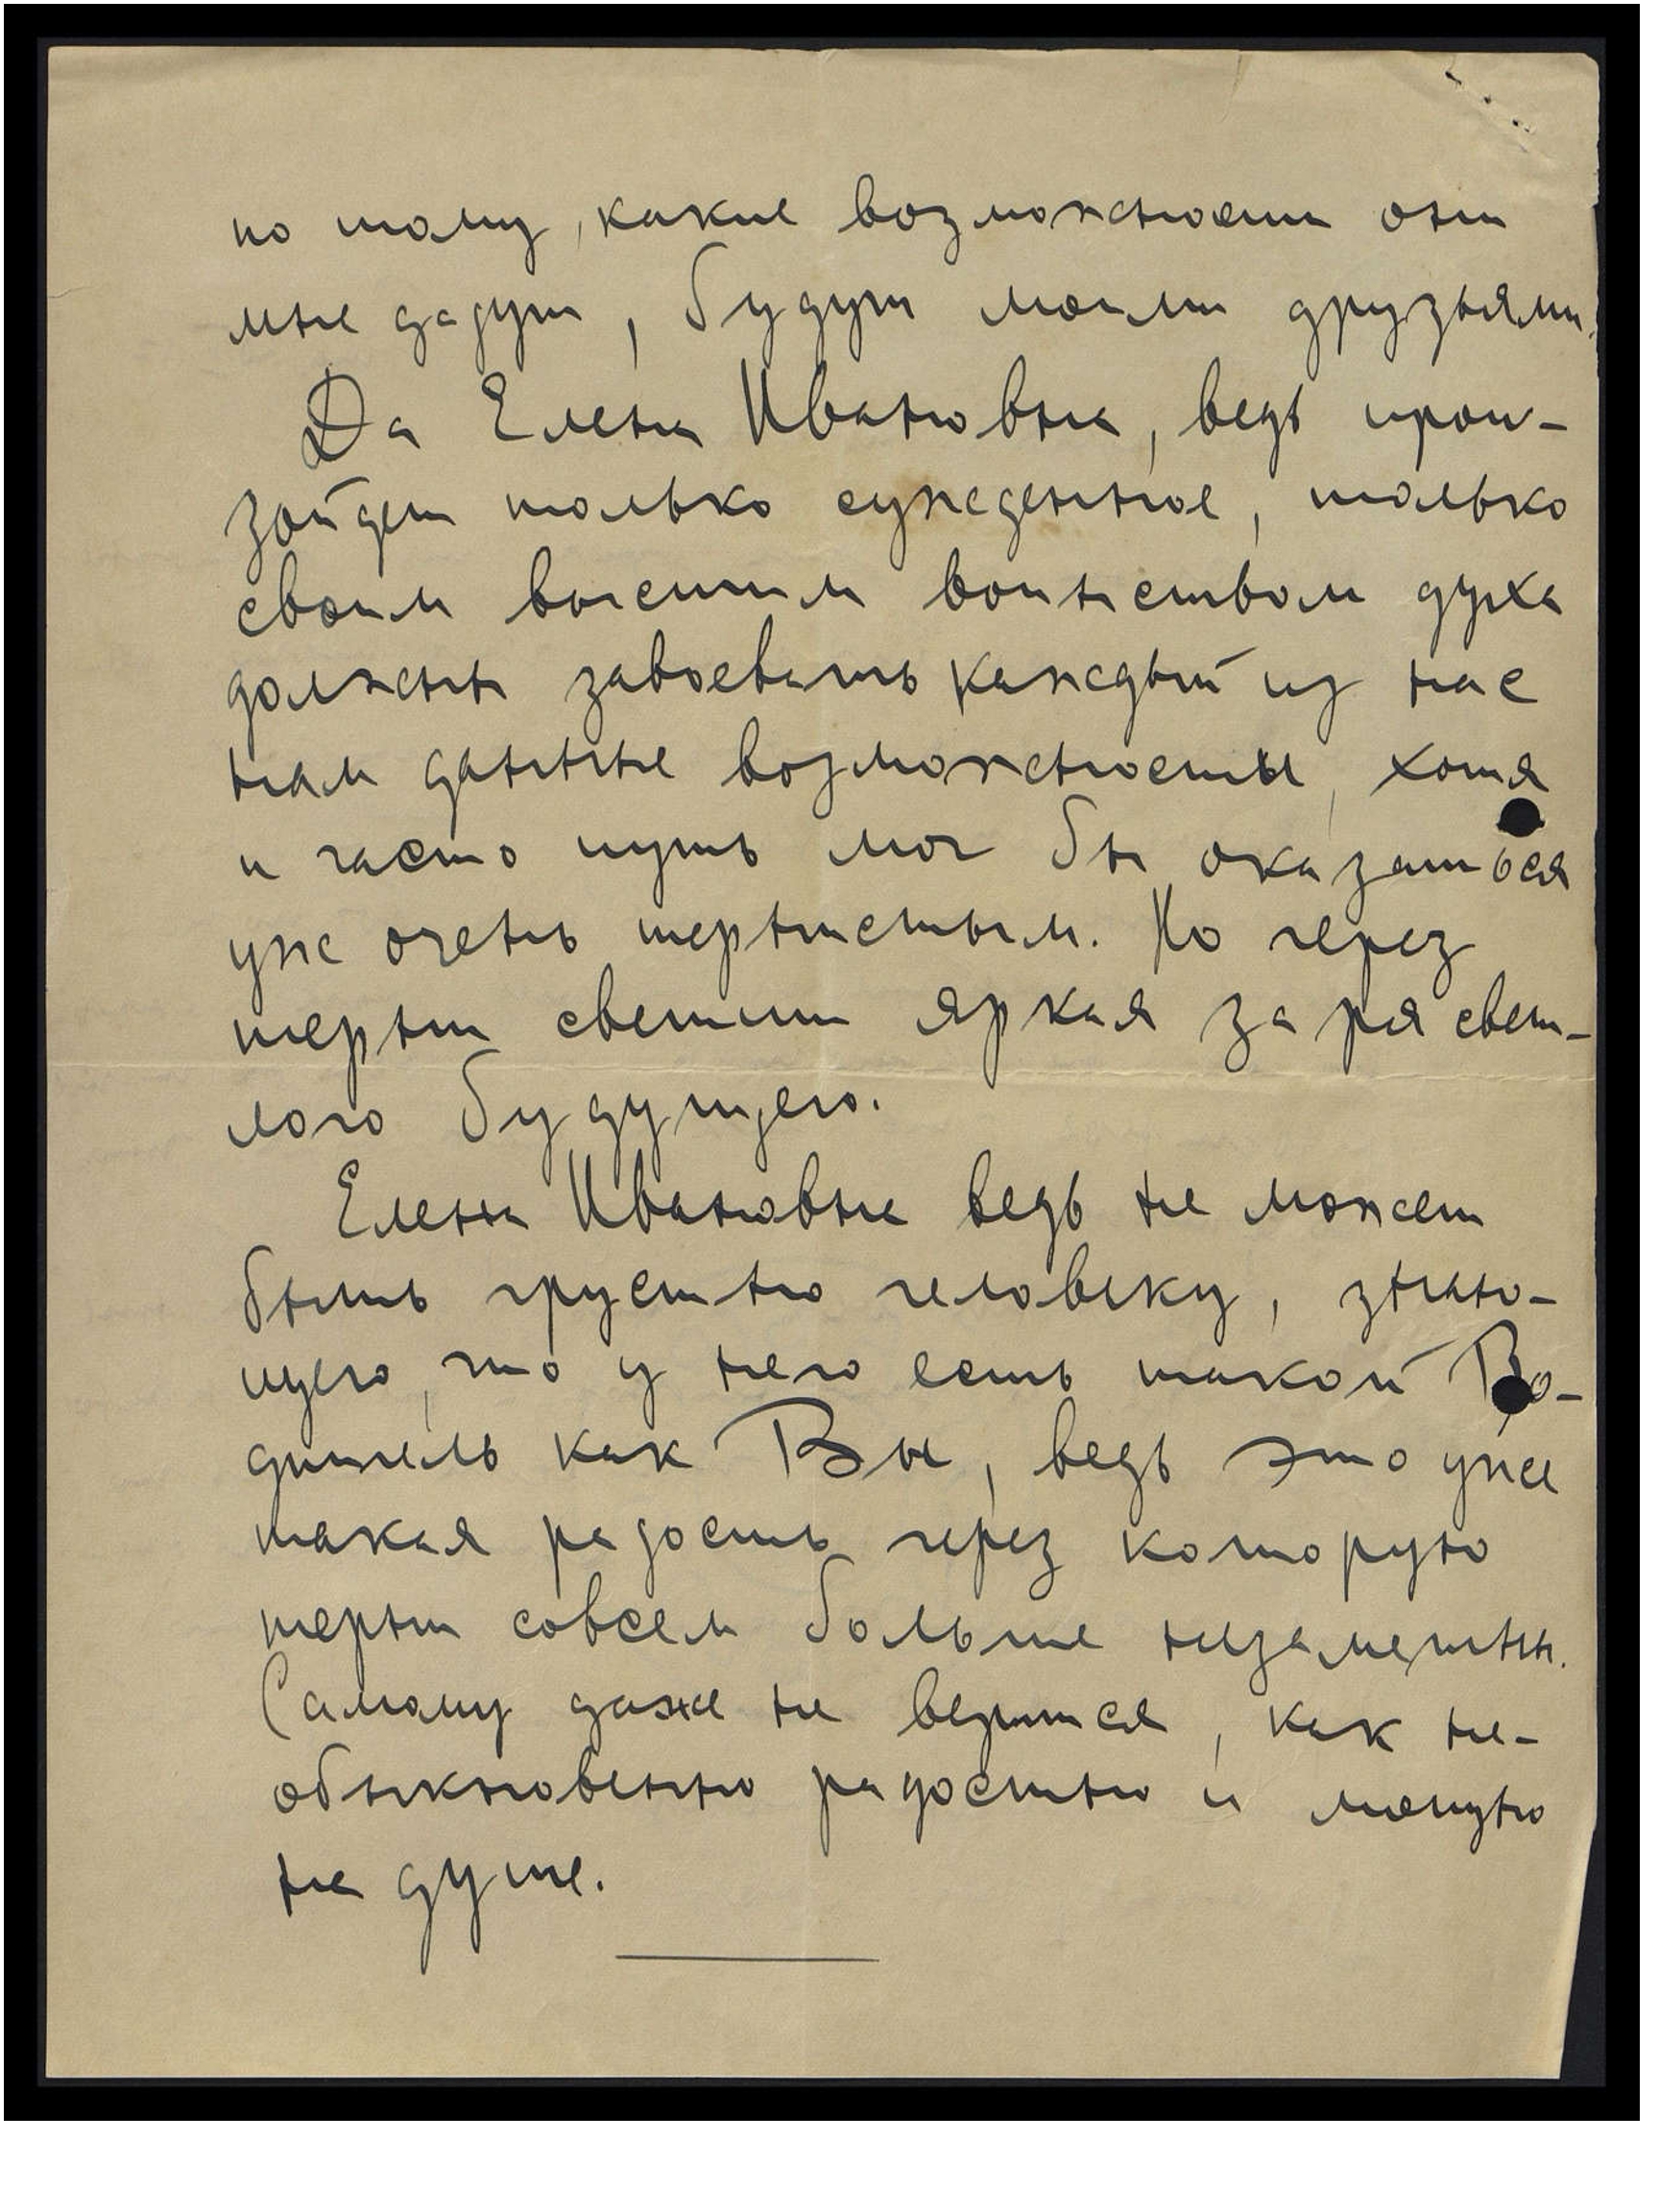 по тому, какие возможности они
мне дадут, будут моими друзьями.
Да Елена Ивановна, ведь прои-
зойдет только сужденное, только
своим высшим воинством духа
должны завоевать каждый из нас
нам данные возможности, хотя
и часто путь мог бы оказаться
уже очень тернистым. Но через
терни светит яркая заря свет-
лого будущего.
Елена Ивановна ведь не может
быть грустно человеку, знаю-
щего, что у него есть такой Во-
дитель как Вы, ведь это уже
такая радость через которую
терни совсем больше незаметны.
Самому даже не верится, как не-
обыкновенно радостно и
на душе.